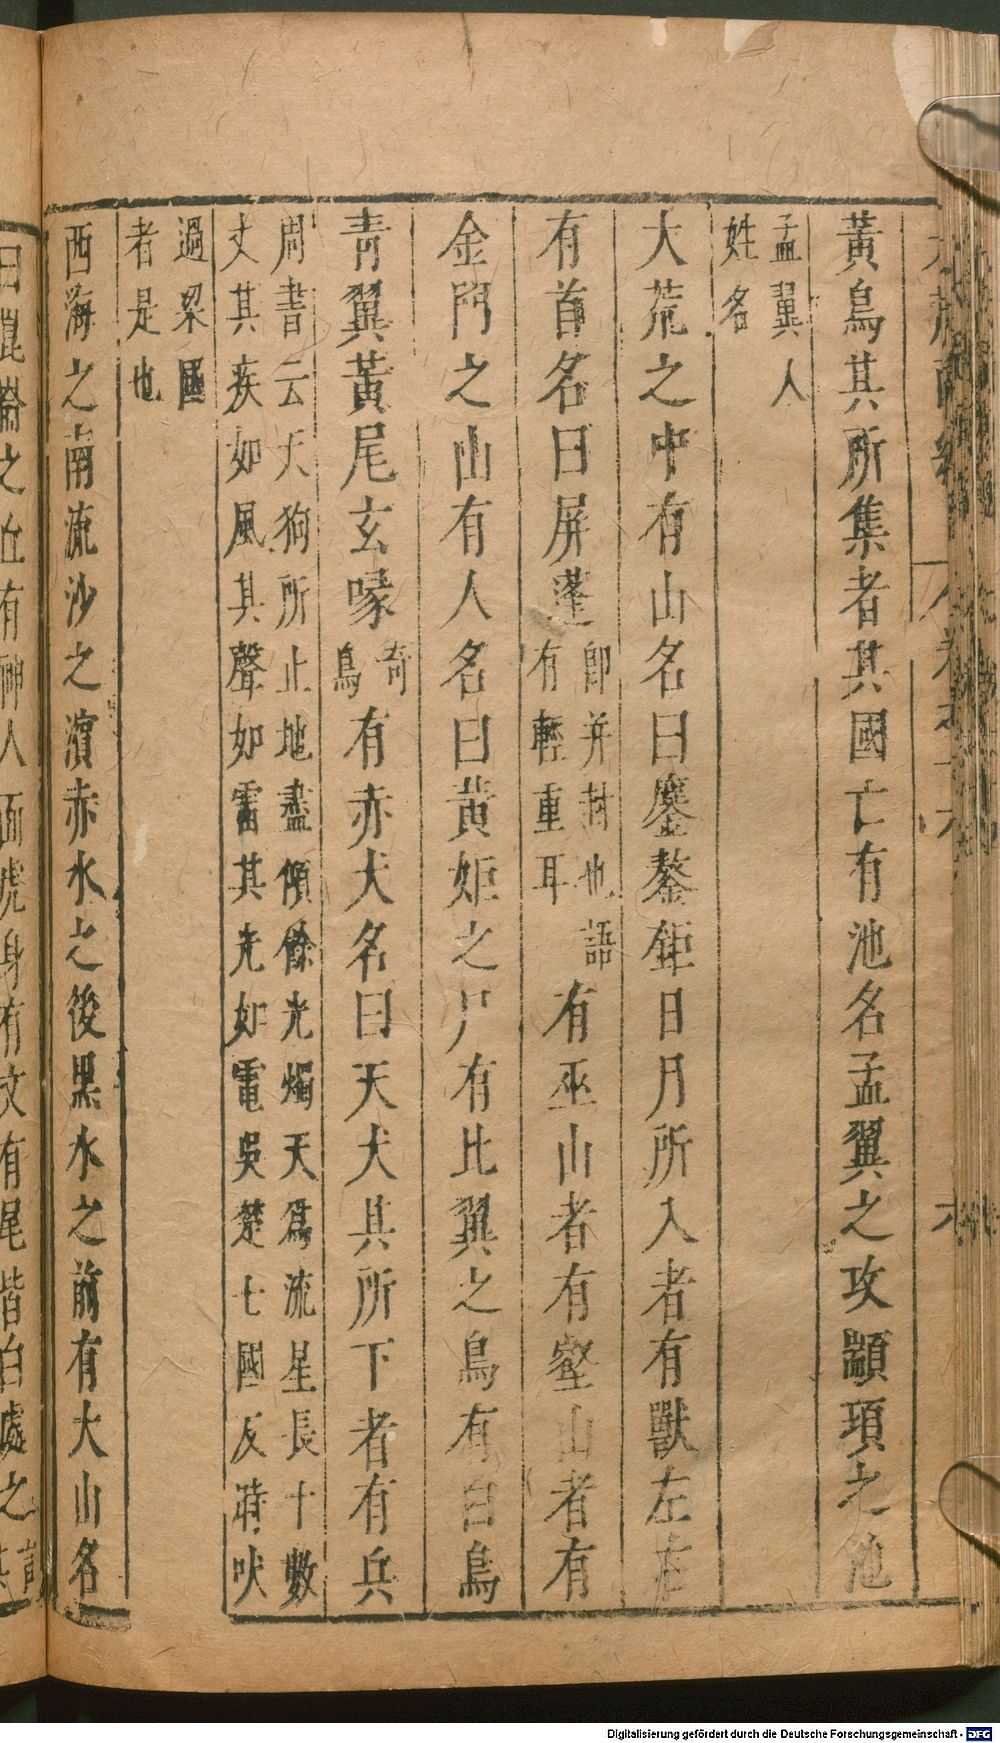 黃鳥其所集者其國亡有池名孟翼之攻顓頊之池
孟翼人
姓名
大荒之中有山名曰鏖鏊鉅日月所入者有獸左右
有首名曰屏蓬
即并封也語
有輕重耳
有巫山者有壑山者有
金門之山有人名曰黃姖之尸有比翼之鳥有白鳥
青翼黃尾玄喙
奇
鳥
有赤犬名曰天犬其所下者有兵
周書云天狗所止地盡傾餘光燭天為流星長十數
丈其疾如風其聲如雷其光如電吳楚七國反時吠
過梁國
者是也
西海之南流沙之濵赤水之後黑水之前有大山名
曰崑崙之丘有神人面虎身有文有尾皆白處之
Digitalisierung gefördert durch die Deutsche Forschungsgemeinschaft - DFG